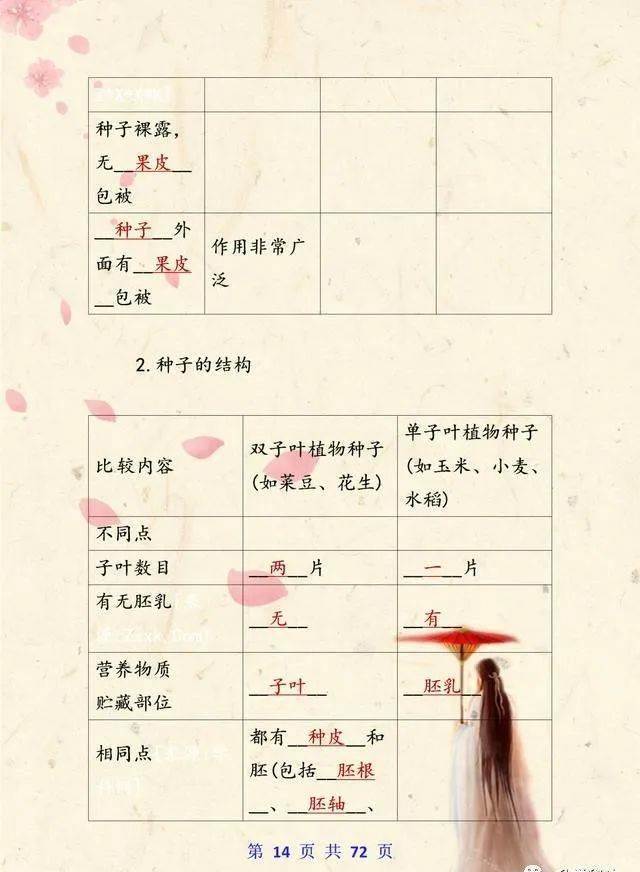 种子裸露，
无__果皮__
包被
__种子__外
面有__果皮
__包被
作用非常广
泛
2.种子的结构
比较内容
双子叶植物种子
(如菜豆、花生)
单子叶植物种子
(如玉米、小麦、
水稻)
不同点
子叶数目
__两__片
__一__片
有无胚乳
__无__
__有__
营养物质
贮藏部位
__子叶__
__胚乳__
相同点
都有__种皮__和
胚(包括__胚根
__、__胚轴__、
第 14 页 共 72 页